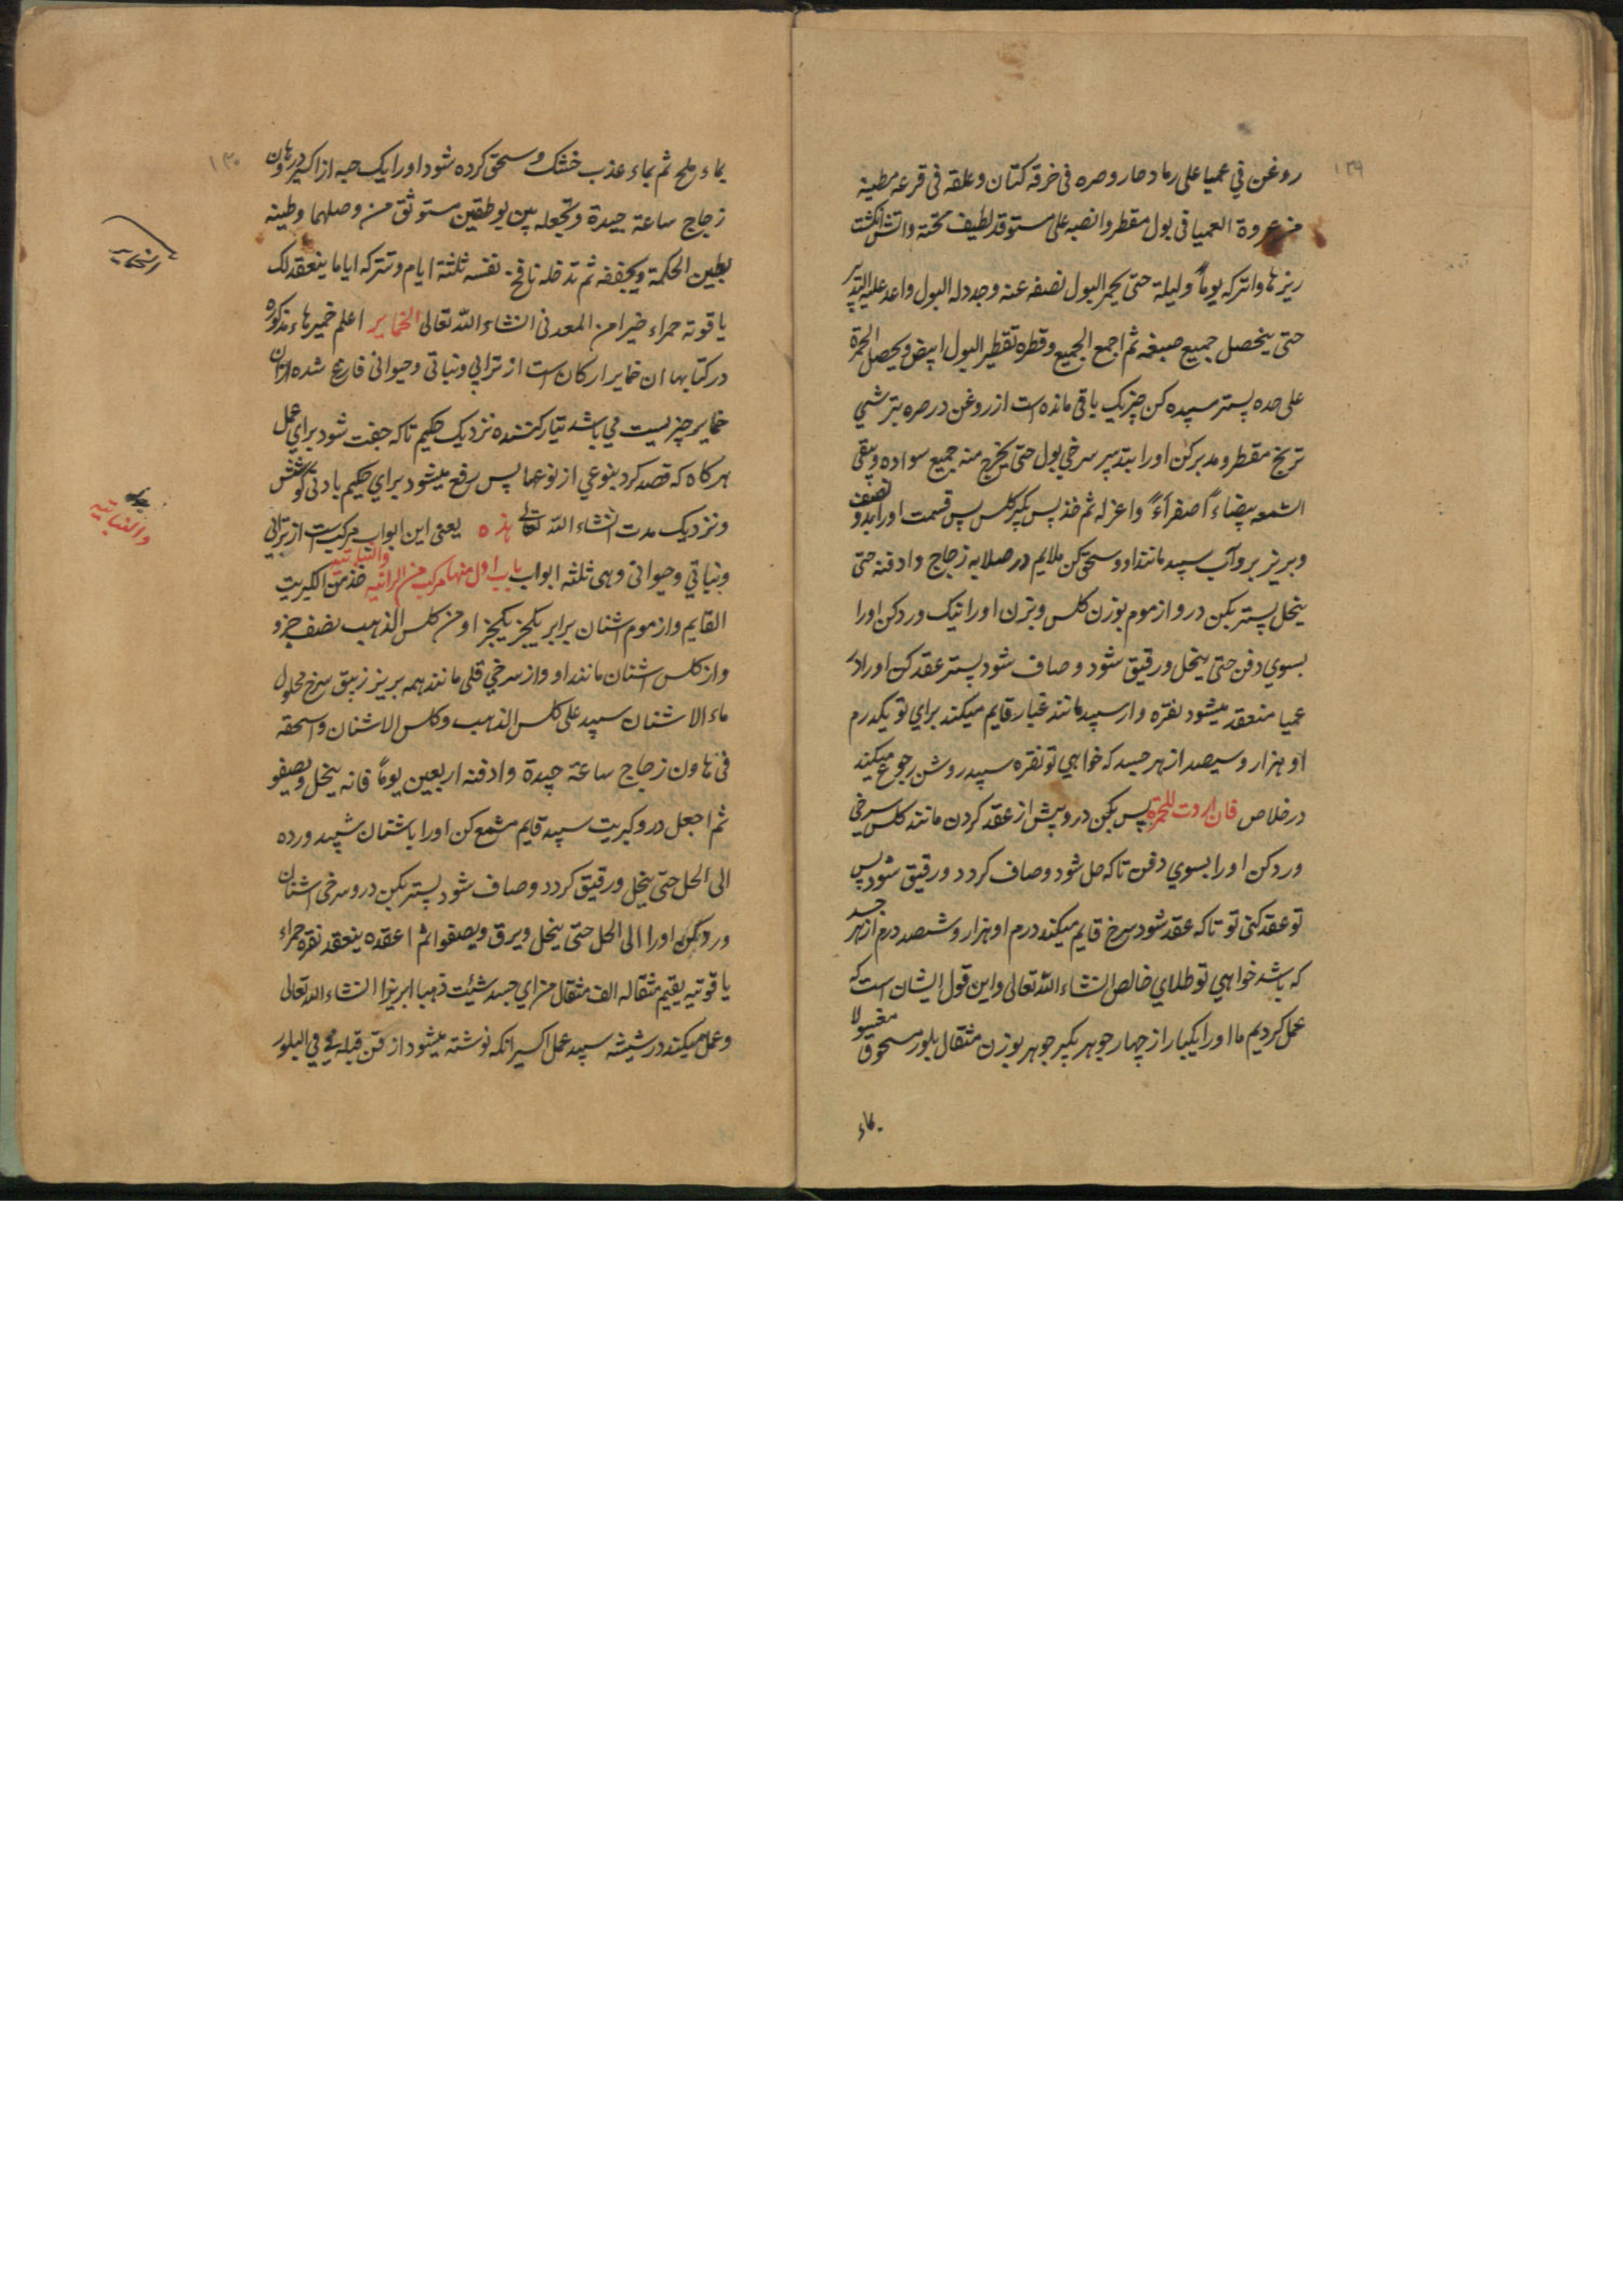 ۱۲۹
روغن في عميا على رماد حار وصره فى خرقه كتان وعلقه فى قرعه مطينه
من عروة العميا فى بول مقطر وانصبه على مستوقد لطيف تحته واتش انكشت
ريزها واتركه يوماً وليلة حتى يحمر البول نصفه عنه وجدد له البول واعد عليه التدبير
حتى ينحصل جميع صبغه ثم اجمع الجميع وقطره تقطير البول ابيض ويحصل الحمرة
على حده پستر سپيده كن چيزيك باقى مانده است از روغن در صره بترشي
ترنج مقطر ومدبر كن اورا بتدبير سرخي بول حتى يخرج منه جميع سواده ويبقى
الشمعه بيضاء اصفراءً واعزله ثم خذ پس بكير كلس پس قسمت اورا بدو نصف
وبريز برو آب سپيد مانند او وسحق كن ملايم در صلايه زجاج وادفنه حتى
ينحل پستر بكن درو از موم بوزن كلس وبزن اورا نيك ورد كن اورا
بسوي دفن حتى ينحل ورقيق شود وصاف شود پستر عقد كن اورا در
عميا منعقد ميشود نقره وار سپيد مانند غبار قايم ميكند براي تو يكدرم
او هزار وسيصد از هر جسد كه خواهي تو نقره سپيد روشن رجوع ميكند
در خلاص فان اردت للحمرة پس بكن درو پيش از عقد كردن مانند كلس سرخي
ورد كن اورا بسوي دفن تاكه حل شود وصاف كردد ورقيق شود پس
تو عقد كنى تو تاكه عقد شود سرخ قايم ميكند درم او هزار وششصد درم از هر جسد
كه باشد خواهي تو طلاي خالص انشاء الله تعالى واين قول ايشان است كه
عمل كرديم ما اورا يكبار از چهار جوهر بكير جوهر بوزن مثقال بلور مسحوق مغسولا
بماء
۱۳۰
بماء ملح ثم بماء عذب خشك وسحق كرده شود اورا يك حبه از اكسير در هاون
زجاج ساعة جيدة وتجعله بين بوطقين مستوثق من وصلهما وطينه
بطين الحكمة ويجففه ثم تدخله نافخ نفسه ثلثة ايام وتتركه اياما ينعقد لك
ياقوته حمراء خيرا من المعدنى انشاء الله تعالى الخماير اعلم خميرهاء مذكوره
در كتابها ان خماير اركان است از ترابي ونباتي وحيوانى فارغ شده ازان
خماير چيزيست مي باشد تيار كننده نزديك حكيم تاكه جفت شود براي عمل
هر كاه كه قصد كرد بنوعي از نوعها پس رفع ميشود براي حكيم بادنى كوشش
ونزديك مدت انشاء الله تعالى هذه يعنى اين ابواب مركبست از ترابي
ونباتي وحيوانى وهى ثلثه ابواب باب اول منها مركب من الترابيه والنباتيه خذ من الكبريت
القايم واز موم اشنان برابر يكجز يكجز او من كلس الذهب نصف جزو
واز كلس اشنان مانند او واز سرخي قلى مانند همه بريز زيبق سرخ محلول
ماء الاشنان سپيد على كلس الذهب وكلس الاشنان واسحقه
فى هاون زجاج ساعة جيدة وادفنه اربعين يوماً فانه ينحل ويصفو
ثم اجعل درو كبريت سپيد قايم مشمع كن اورا باشنان سپيد ورده
الى الحل حتى ينحل ورقيق كردد وصاف شود پستر بكن درو سرخى اشنان
ورد كن اورا الى الحل حتى ينحل ويرق ويصفوا ثم اعقده ينعقد نقره حمراء
ياقوتيه يقيم مثقاله الف مثقال من اي جسد شئت ذهبا ابريزا انشاء الله تعالى
وعمل ميكند در شيشه سپيد عمل اكسير انكه نوشته ميشود از فن قبله في البلور
الخماير
والنباتيه